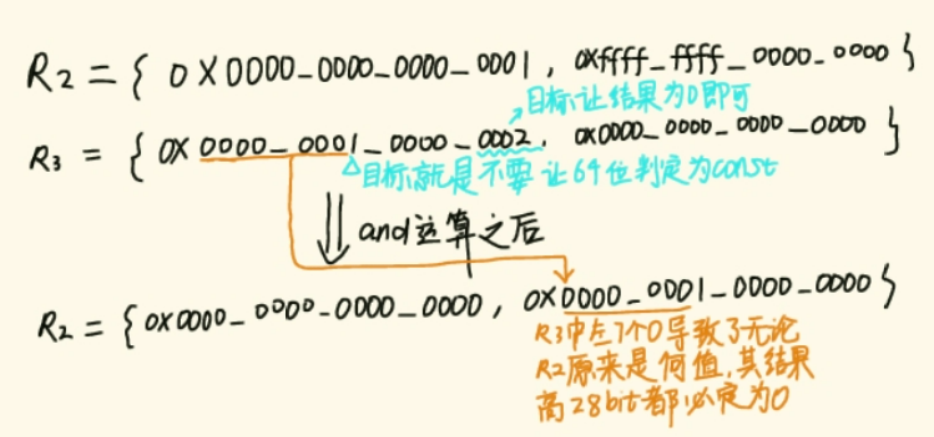 R2 = { 0X0000_0000_0000_0001, 0xffff_ffff_0000_0000 }
目标让结果为0即可
R3 = { 0X 0000_0001_0000_0002, 0X0000_0000_0000_0000 }
目标就是不要让64位判定为const
and运算之后
R2 = {0X0000_0000_0000_0000, 0X0000_0001_0000_0000}
R3中左7个0导致了无论
R2原来是何值,其结果
高28bit都必定为0